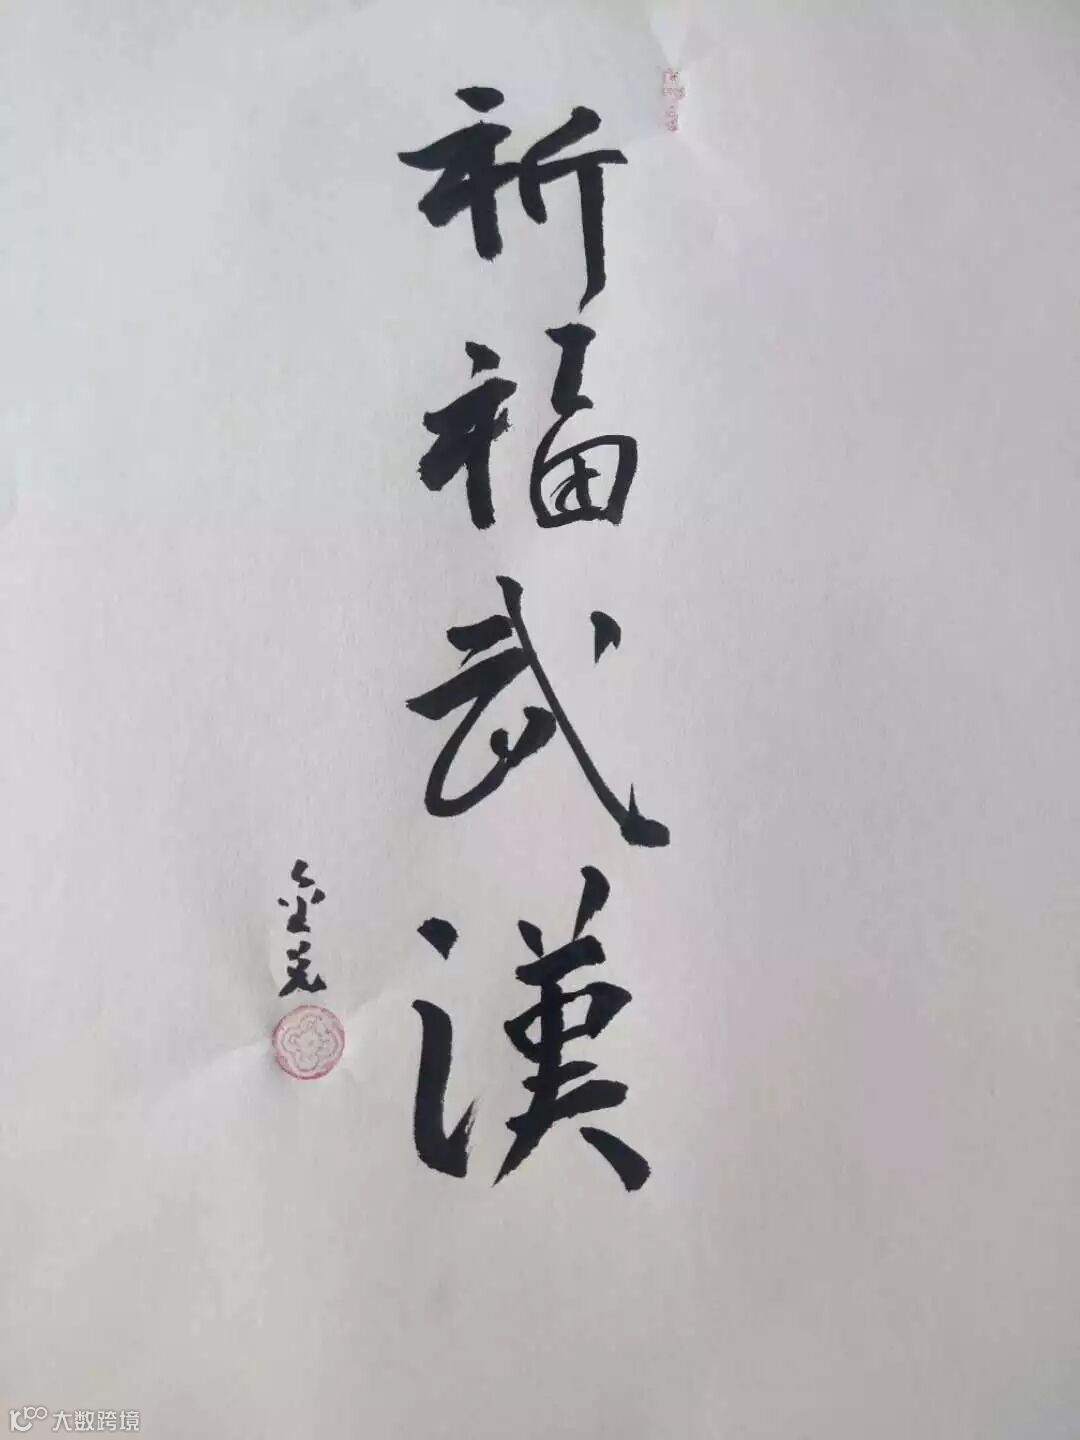 祈福武漢
大数跨境